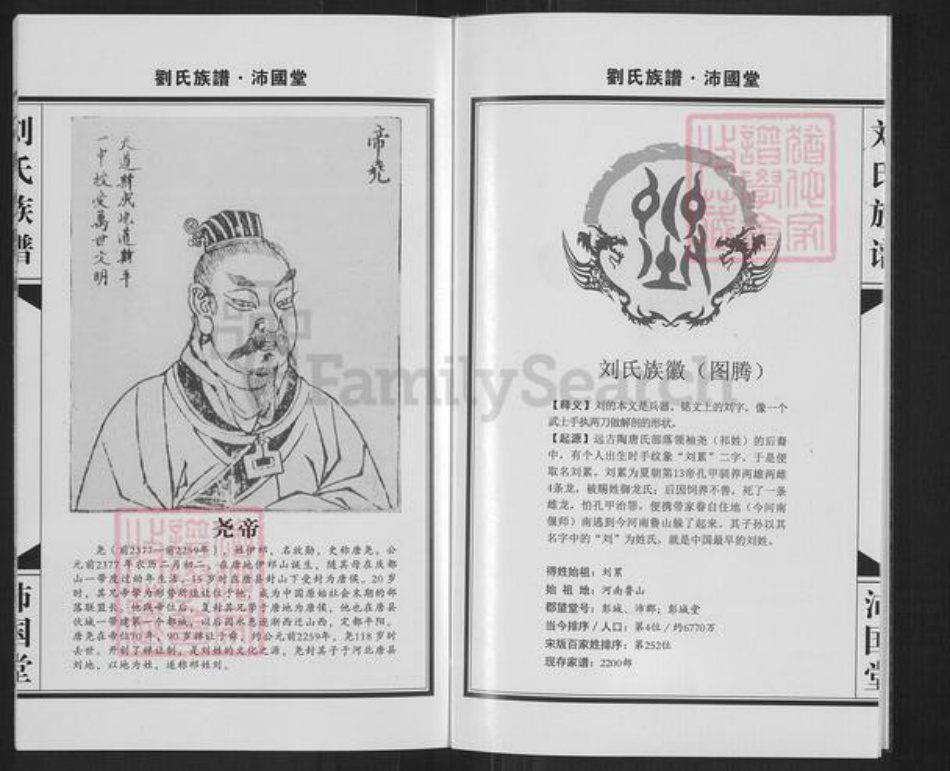 劉氏族譜·沛國堂
刘氏族谱
沛国堂
帝堯
天道

一中授受萬世文明
尧帝
尧(前2377—前2259年),姓伊祁,名放勋,史称唐尧。公
元前2377年农历二月初二,在唐地伊祁山诞生,随其母在庆都
山一带度过幼年生活。15岁时在唐县封山下受封为唐侯。20岁
时,其兄帝挚为形势所迫让位于他,成为中国原始社会末期的部
落联盟长。他践帝位后,复封其兄挚于唐地为唐侯,他也在唐县
伏城一带建第一个都城,以后因水患逐渐西迁山西,定都平阳。
唐尧在帝位70年,90岁禅让于舜,约公元前2259年,尧118岁时
去世。开创了禅让制,是刘姓的文化之源,尧封其子于河北唐县
刘地,以地为姓,遂称祁姓刘。
劉氏族譜·沛國堂
刘氏族徽(图腾)
【释义】刘的本文是兵器,铭文上的刘字,像一个
武士手执两刀做解剖的形状。
【起源】远古陶唐氏部落领袖尧(祁姓)的后裔
中,有个人出生时手纹象“刘累”二字,于是便
取名刘累。刘累为夏朝第13帝孔甲驯养两雄两雌
4条龙,被赐姓御龙氏;后因饲养不善,死了一条
雌龙,怕孔甲治罪,便携带家眷自住地(今河南
偃师)南逃到今河南鲁山躲了起来,其子孙以其
名字中的“刘”为姓氏,就是中国最早的刘姓。
得姓始祖:刘累
始 祖 地:河南鲁山
郡望堂号:彭城、沛郡;彭城堂
当今排序/人口:第4位/约6770万
宋版百家姓排序:第252位
现存家谱:2200部
刘氏族谱
沛国堂
FamilySearch